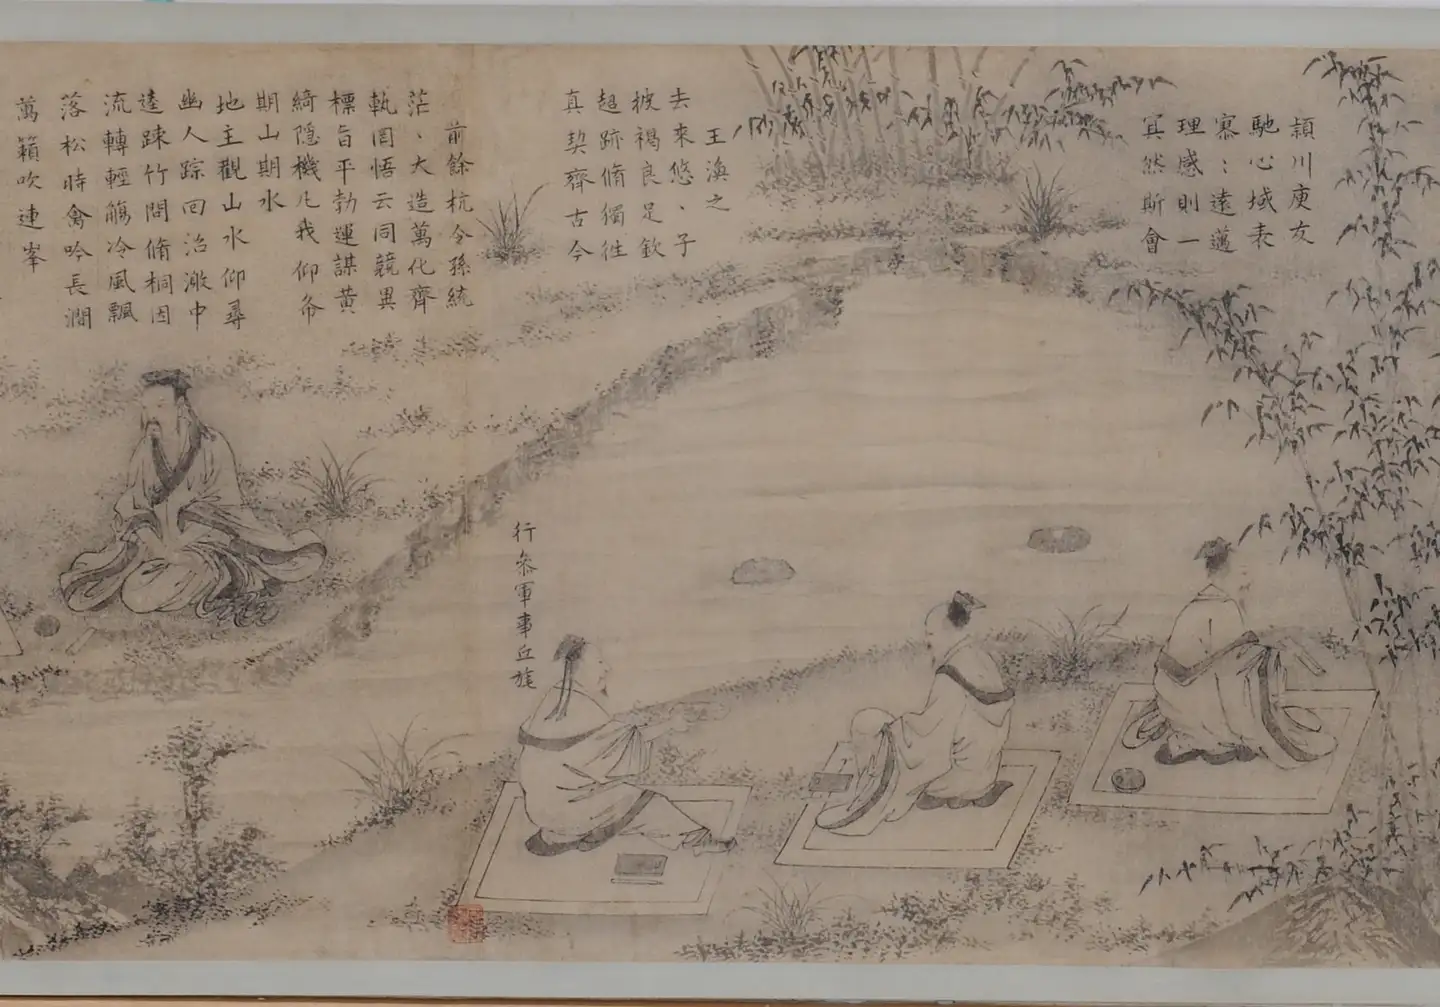 頴川庾友
馳心域表
寥：遠邁
理感則一
冥然斯會
王渙之
去來悠、子
披褐良足欽
超跡脩獨往
真契齊古今
前餘杭令孫統
茫、大造萬化齊
軌罔悟玄同競異
標旨平勃運謀黃
綺隱機凡我仰希
期山期水
地主觀山水仰尋
幽人踪回沼激中
逵疎竹間脩桐因
流轉輕觴冷風飄
落松時禽吟長澗
萬籟吹連峯
行參軍事丘旄